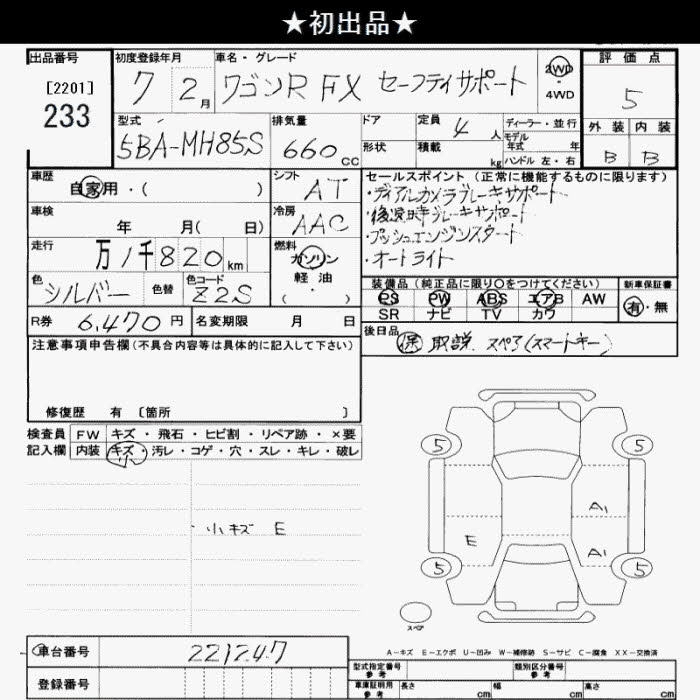 ★初出品★
出品番号
[2201]
233
初度登録年月
7 2月
車名・グレード
ワゴンR FX セーフティサポート
2WD
・
4WD
評価点
5
外装 内装
B B
型式
5BA-MH85S
排気量
660cc
ドア
形状
定員 4人
積載 kg
ディーラー・並行
モデル年式 年
ハンドル 左・右
車歴
自家用・( )
シフト
AT
車検
年 月( 日)
冷房
AAC
走行
万1千820km
燃料
ガソリン
軽油
( ・ )
色
シルバー
色替
色コード
Z2S
R券 6,470円
名変期限 月 日
セールスポイント (正常に機能するものに限ります)
・ディアルカメラブレーキサポート
・後退時ブレーキサポート
・プッシュエンジンスタート
・オートライト
装備品 (純正品に限り○をつけてください)
PS PW ABS エアB AW
SR ナビ TV カワ
新車保証書
有・無
後日品
保 取説 スペア(スマートキー)
注意事項申告欄(不具合内容等は具体的に記入して下さい)
修復歴 有 〔箇所 〕
検査員 FW キズ・飛石・ヒビ割・リペア跡・×要
記入欄 内装 キズ・汚レ・コゲ・穴・スレ・キレ・破レ
小
小キズ E
5 5
A1
E A1
5 5
スペア
A-キズ E-エクボ U-凹み W-補修跡 S-サビ C-腐食 XX-交換済
車台番号 221247
登録番号
型式指定番号 参考
類別区分番号 参考
車庫証明用 参考 長さ cm 幅 cm 高さ cm